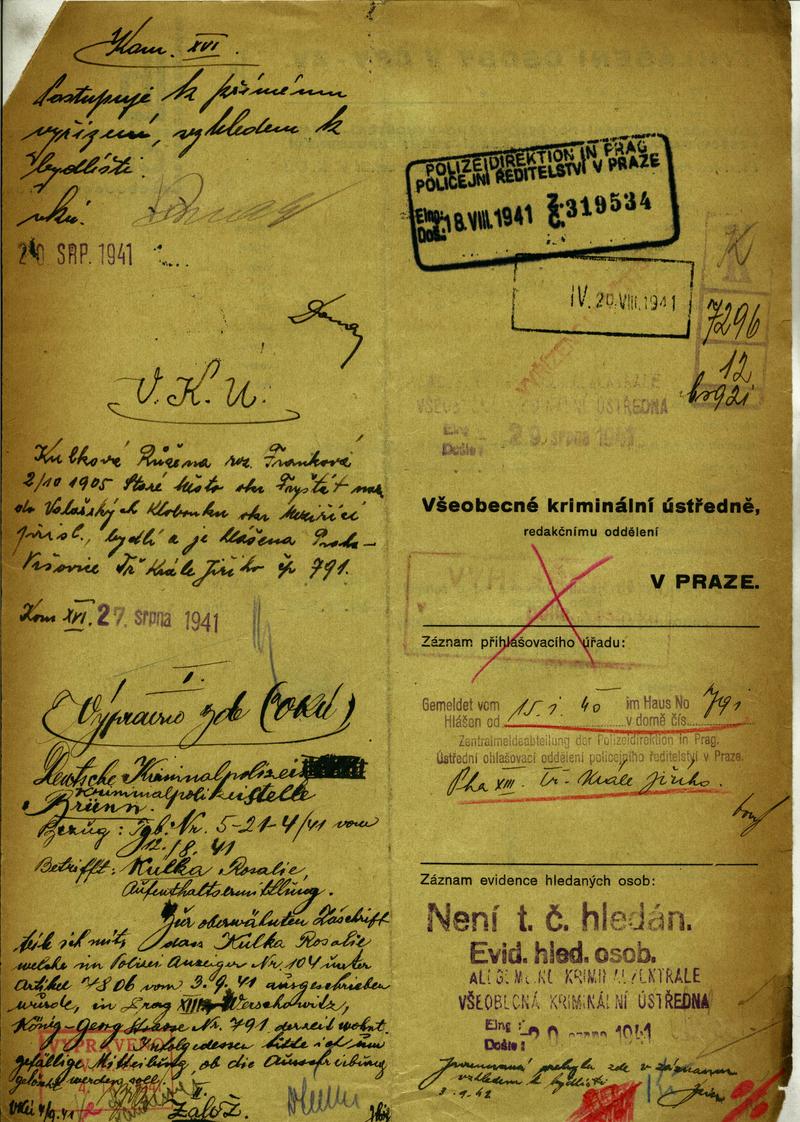 Kom. XVI.
Postupuje k přímému
vyřízení, vzhledem k
bydlišti.
20 SRP. 1941
V. K. Ú.
Kulková Růžena roz. Franková
2/10 1905 Staré Město okr Fryštát
do Valašských Klobouku okr Meziříčí
přísl., bydlí a je hlášena Praha-
Vršovice Tř Krále Jiřího čp 791.
Kom XVI. 27. srpna 1941
I.
Výpravno zde
Deutsche Kriminalpolizei
Kriminalpolizeistelle
Brünn.
Bezug: Tgb. Nr. 5-21-4/41 vom
12./8. 41
Betrifft: Kulka Rosalie,
Aufenthaltsermittlung.
Zur oberwähnten Zuschrift
teile ich mit, dass Kulka Rosalie
welche im Polizei Anzeiger Nr. 104 unter
Artikel 7806 vom 3.9.41 ausgeschrieben
wurde, in Prag XIII Werschowitz,
König-Georg Strasse Nr. 791 derzeit wohnt.
Infolgedessen bitte ich um
gefällige Mitteilung, ob die Ausschreibung
gelöscht werden soll.
II.
Založ.
POLIZEIDIREKTION IN PRAG
POLICEJNÍ ŘEDITELSTVÍ V PRAZE
Eing:
Doš: 18. VIII. 1941 Z. Č. 319534
IV. 20. VIII. 1941
K
7296
12
VŠEOBECNÁ KRIMINÁLNÍ ÚSTŘEDNA
Eing.:
Došle: 29. srpna 1941
Všeobecné kriminální ústředně,
redakčnímu oddělení
V PRAZE.
Záznam přihlašovacího úřadu:
Gemeldet vom 15. 1. 40 im Haus No 791
Hlášen od v domě čís.
Zentralmeldeabteilung der Polizeidirektion in Prag.
Ústřední ohlašovací oddělení policejního ředitelství v Praze.
Pha XIII. Tř. Krále Jiřího.
Záznam evidence hledaných osob:
Není t. č. hledán.
Evid. hled. osob.
ALLGEMEINE KRIMINALZENTRALE
VŠEOBECNÁ KRIMINÁLNÍ ÚSTŘEDNA
Eing.:
Došle: 20. srpna 1941
Jmenovaná
vzhledem k bydlišti